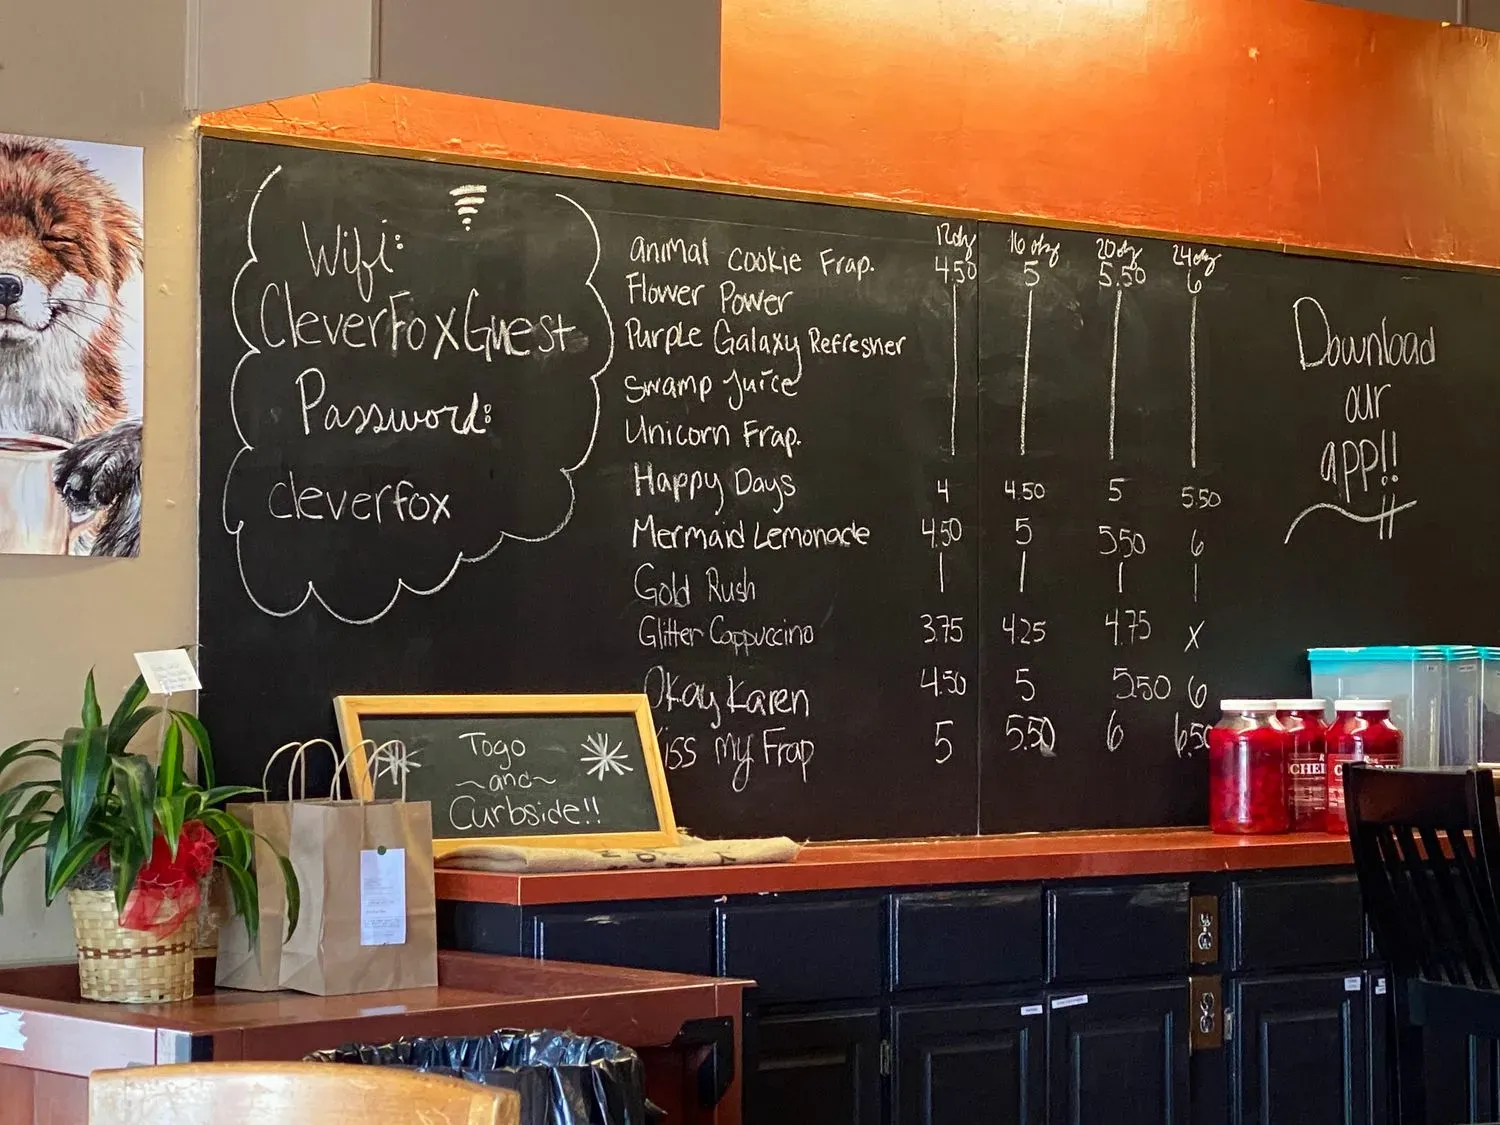 Wifi:
CleverFoxGuest
Password:
cleverfox
12oz 16oz 20oz 24oz
Animal Cookie Frap. 4.50 5 5.50 6
Flower Power
Purple Galaxy Refresher
Swamp Juice
Unicorn Frap.
Happy Days 4 4.50 5 5.50
Mermaid Lemonade 4.50 5 5.50 6
Gold Rush
Glitter Cappuccino 3.75 4.25 4.75 X
Okay Karen 4.50 5 5.50 6
Kiss My Frap 5 5.50 6 6.50
Download
our
app!!
Togo
~and~
Curbside!!